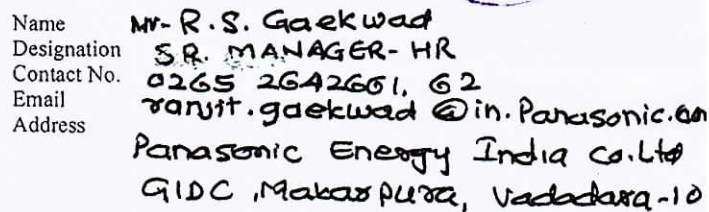 Name Mr- R.S. Gaekwad
Designation SR. MANAGER- HR
Contact No. 0265 2642661, 62
Email ranjit.gaekwad @in.Panasonic.com
Address
Panasonic Energy India Co.Ltd
GIDC, Makarpura, Vadodara-10